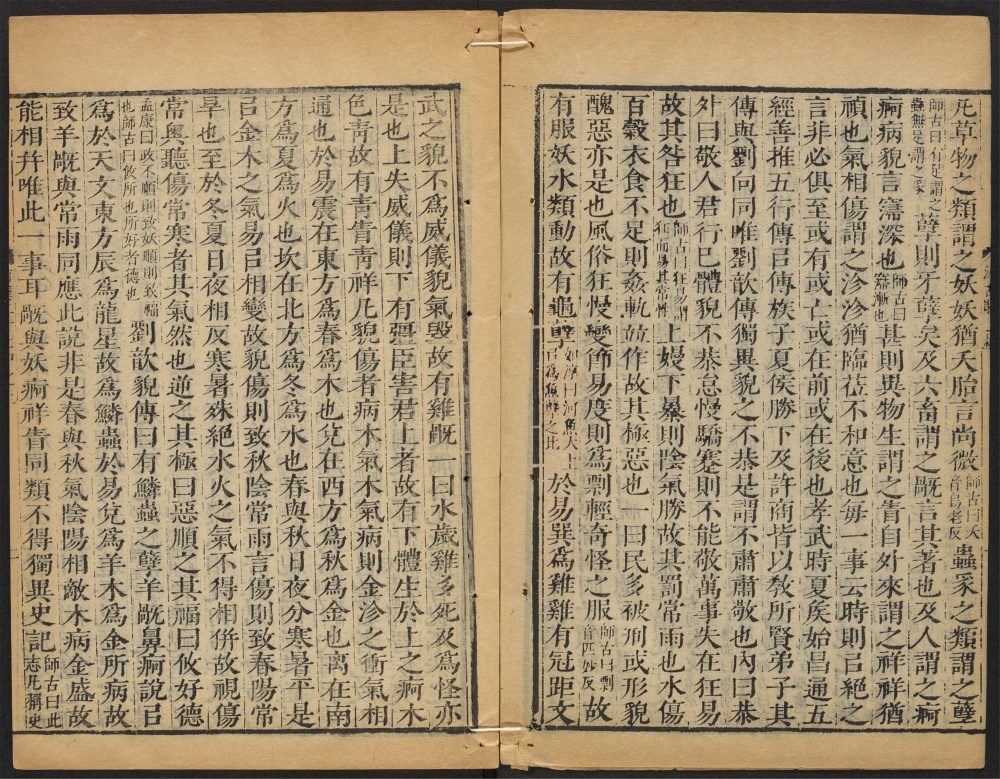 凡草物之類謂之妖妖猶夭胎言尚微師古曰夭音烏老反蟲豸之類謂之孽
師古曰有足謂之蟲無足謂之豸孽則牙孽矣及六畜謂之旤言其著也及人謂之痾
痾病貌言寖深也師古曰寖漸也甚則異物生謂之眚自外來謂之祥祥猶
禎也氣相傷謂之沴沴猶臨莅不和意也每一事云時則㠯絕之
言非必俱至或有或亡或在前或在後也孝武時夏矦始昌通五
經善推五行傳㠯傳族子夏矦勝下及許商皆以教所賢弟子其
傳與劉向同唯劉歆傳獨異貌之不恭是謂不肅肅敬也內曰恭
外曰敬人君行己體貌不恭怠慢驕蹇則不能敬萬事失在狂易
故其咎狂也師古曰狂易謂狂而易其常性上嫚下暴則陰氣勝故其罰常雨也水傷
百穀衣食不足則姦軌並作故其極惡也一曰民多被刑或形貌
醜惡亦是也風俗狂慢變節易度則爲剽輕奇怪之服師古曰剽音匹妙反故
有服妖水類動故有龜孽如淳曰河魚大上㠯爲魚孽之比於易巽爲雞雞有冠距文
武之貌不爲威儀貌氣毀故有雞旤一曰水歲雞多死及爲怪亦
是也上失威儀則下有彊臣害君上者故有下體生於上之痾木
色青故有青眚青祥凡貌傷者病木氣木氣病則金沴之衝氣相
通也於易震在東方爲春爲木也兌在西方爲秋爲金也離在南
方爲夏爲火也坎在北方爲冬爲水也春與秋日夜分寒暑平是
㠯金木之氣易㠯相變故貌傷則致秋陰常雨言傷則致春陽常
旱也至於冬夏日夜相反寒暑殊絕水火之氣不得相併故視傷
常奧聽傷常寒者其氣然也逆之其極曰惡順之其福曰攸好德
孟康曰政不順則致妖順則致福也師古曰攸所也所好者德也劉歆貌傳曰有鱗蟲之孽羊旤鼻痾說㠯
爲於天文東方辰爲龍星故爲鱗蟲於易兌爲羊木爲金所病故
致羊旤與常雨同應此說非是春與秋氣陰陽相敵木病金盛故
能相幷唯此一事耳旤與妖痾祥眚同類不得獨異史記師古曰此志凡稱史